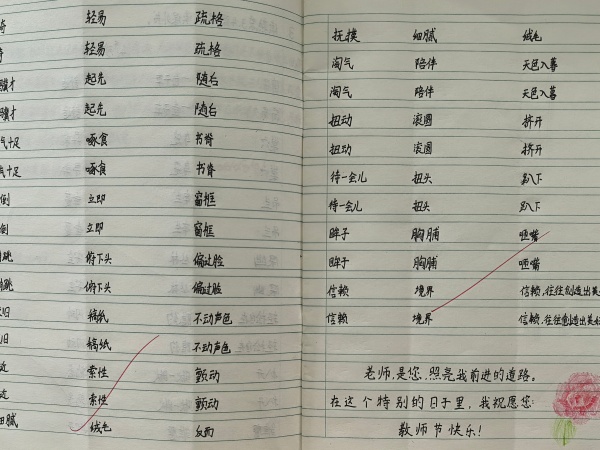 轻易 疏格
轻易 疏格
骥才 起先 随后
骥才 起先 随后
气十足 啄食 书脊
气十足 啄食 书脊
倒 立即 窗框
倒 立即 窗框
跳 俯下头 偏过脸
跳 俯下头 偏过脸
旧 稿纸 不动声色
旧 稿纸 不动声色
索性 颤动
索性 颤动
细腻 绒毛 反面
抚摸 细腻 绒毛
淘气 陪伴 天色入暮
淘气 陪伴 天色入暮
扭动 滚圆 挤开
扭动 滚圆 挤开
待一会儿 扭头 趴下
待一会儿 扭头 趴下
眸子 胸脯 咂嘴
眸子 胸脯 咂嘴
信赖 境界 信赖,往往创造出美
信赖 境界 信赖,往往创造出美好
老师,是您,照亮我前进的道路。
在这个特别的日子里,我祝愿您:
教师节快乐!